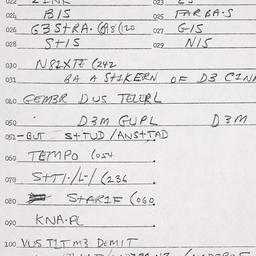 024 BIS 025 FARBA·S
026 G3STRA· (A18(120 027 GIS
028 S+IS 029 NIS
030 N81XTE (242
031 BA A S+1KERN OF D3 CINA
040 GEM3R DUS TELERL
050 D3M GUPL D3M
051 -GUT S++UD /ANS+TAD
060 TEMPO (054
070 S+TI·/L-/ (236
080 S+AR1F (060
090 KNA·PL
100 VUS TIT M3 DEMIT